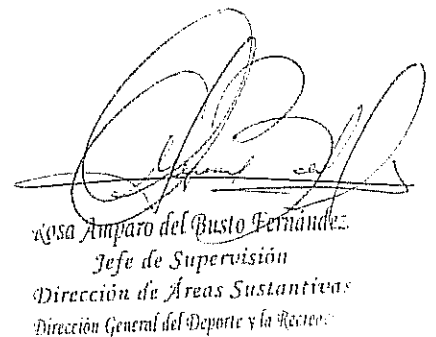 Rosa Amparo del Busto Fernández
Jefe de Supervisión
Dirección de Áreas Sustantivas
Dirección General del Deporte y la